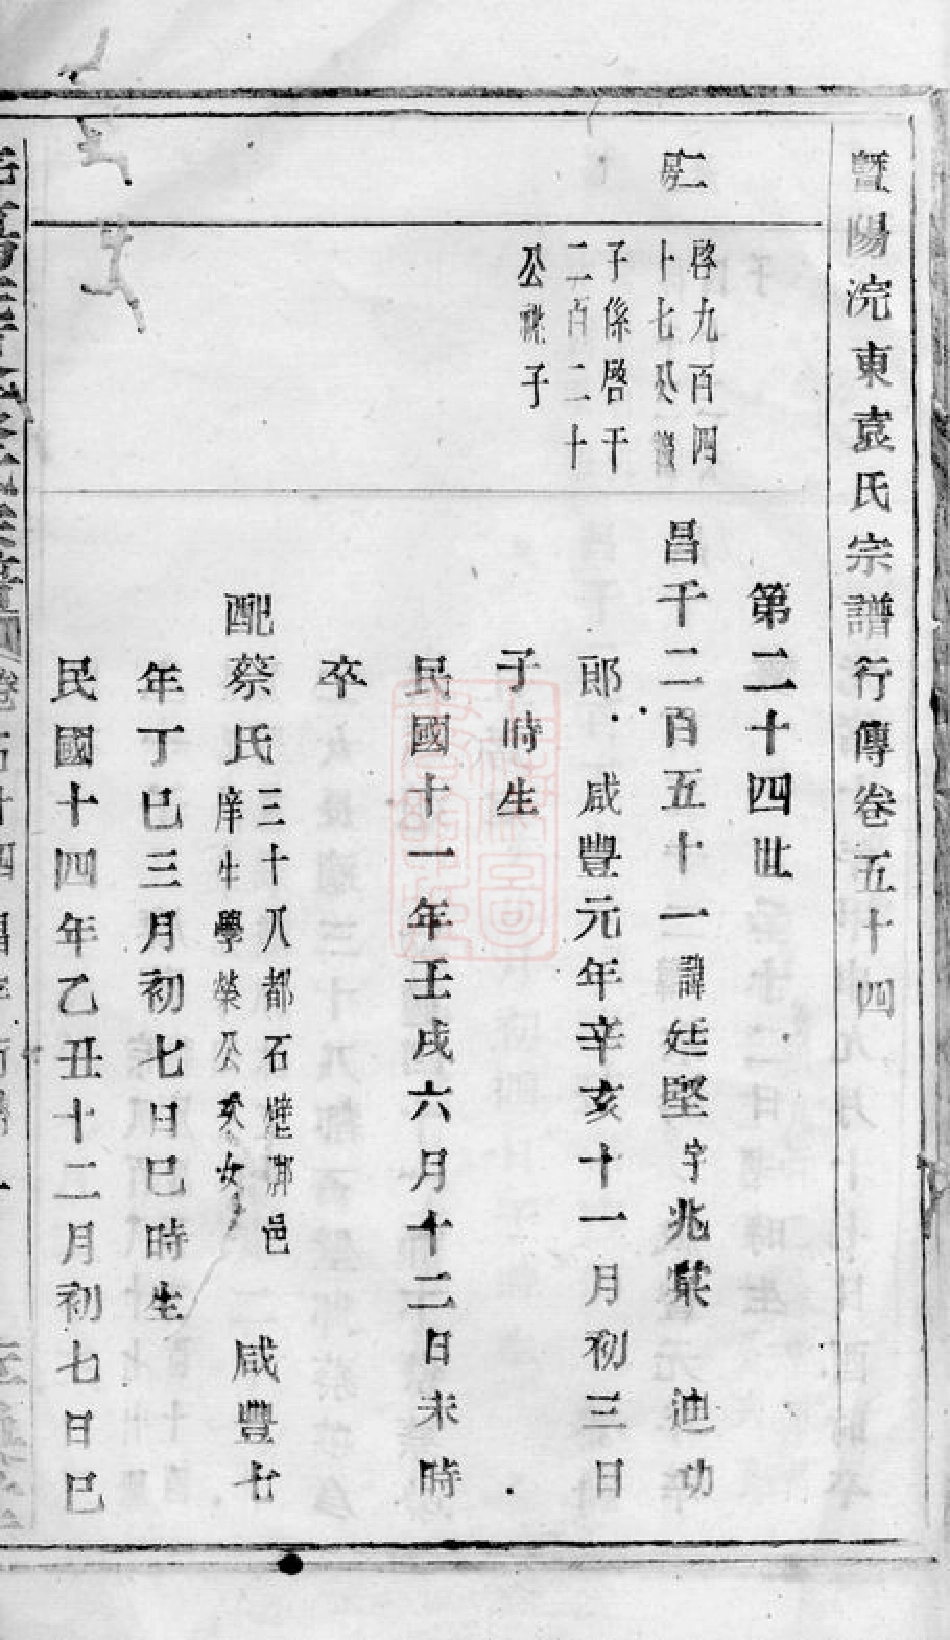 暨陽浣東袁氏宗譜行傳卷五十四
二房
啓九百四
十七公繼
子係啓千
二百二十
公祧子
第二十四世
昌千二百五十一諱廷堅字兆棠　迪功
郎　咸豐元年辛亥十一月初三日
子時生
民國十一年壬戌六月十二日未時
卒
配蔡氏三十八都石壁邨邑
庠生學榮公次女　咸豐七
年丁巳三月初七日巳時生
民國十四年乙丑十二月初七日巳